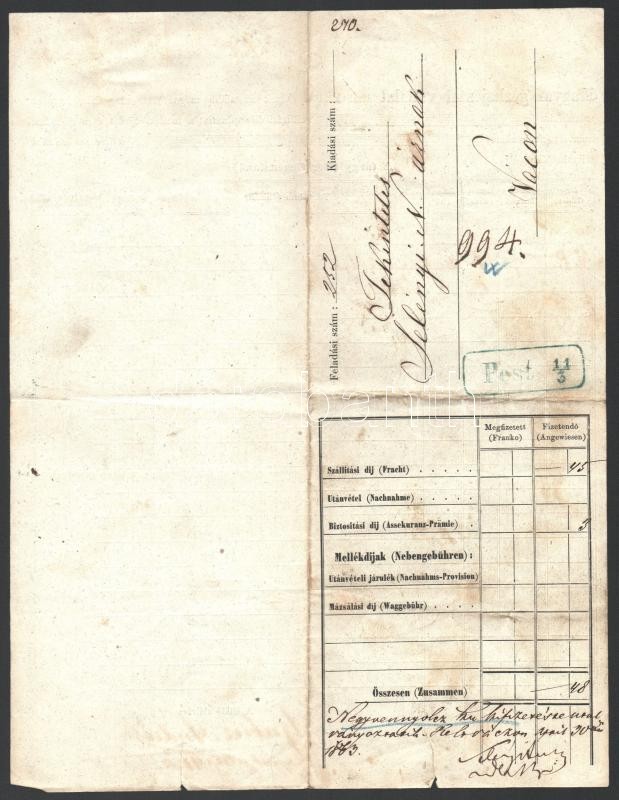 270.
Feladási szám: 252 Kiadási szám:
Tekintetes
Selényi N. úrnak
994.
Vácon
Pest 11/3
Megfizetett (Franko)
Fizetendő (Angewiesen)
Szállítási díj (Fracht) . . . . . — 45
Utánvétel (Nachnahme) . . . .
Biztosítási díj (Assekuranz-Prämie . 3
Mellékdíjak (Nebengebühren):
Utánvételi járulék (Nachnahms-Provision)
Mázsálási díj (Waggebühr) . . . .
Összesen (Zusammen) — 48
Negyvennyolcz
30
1863.